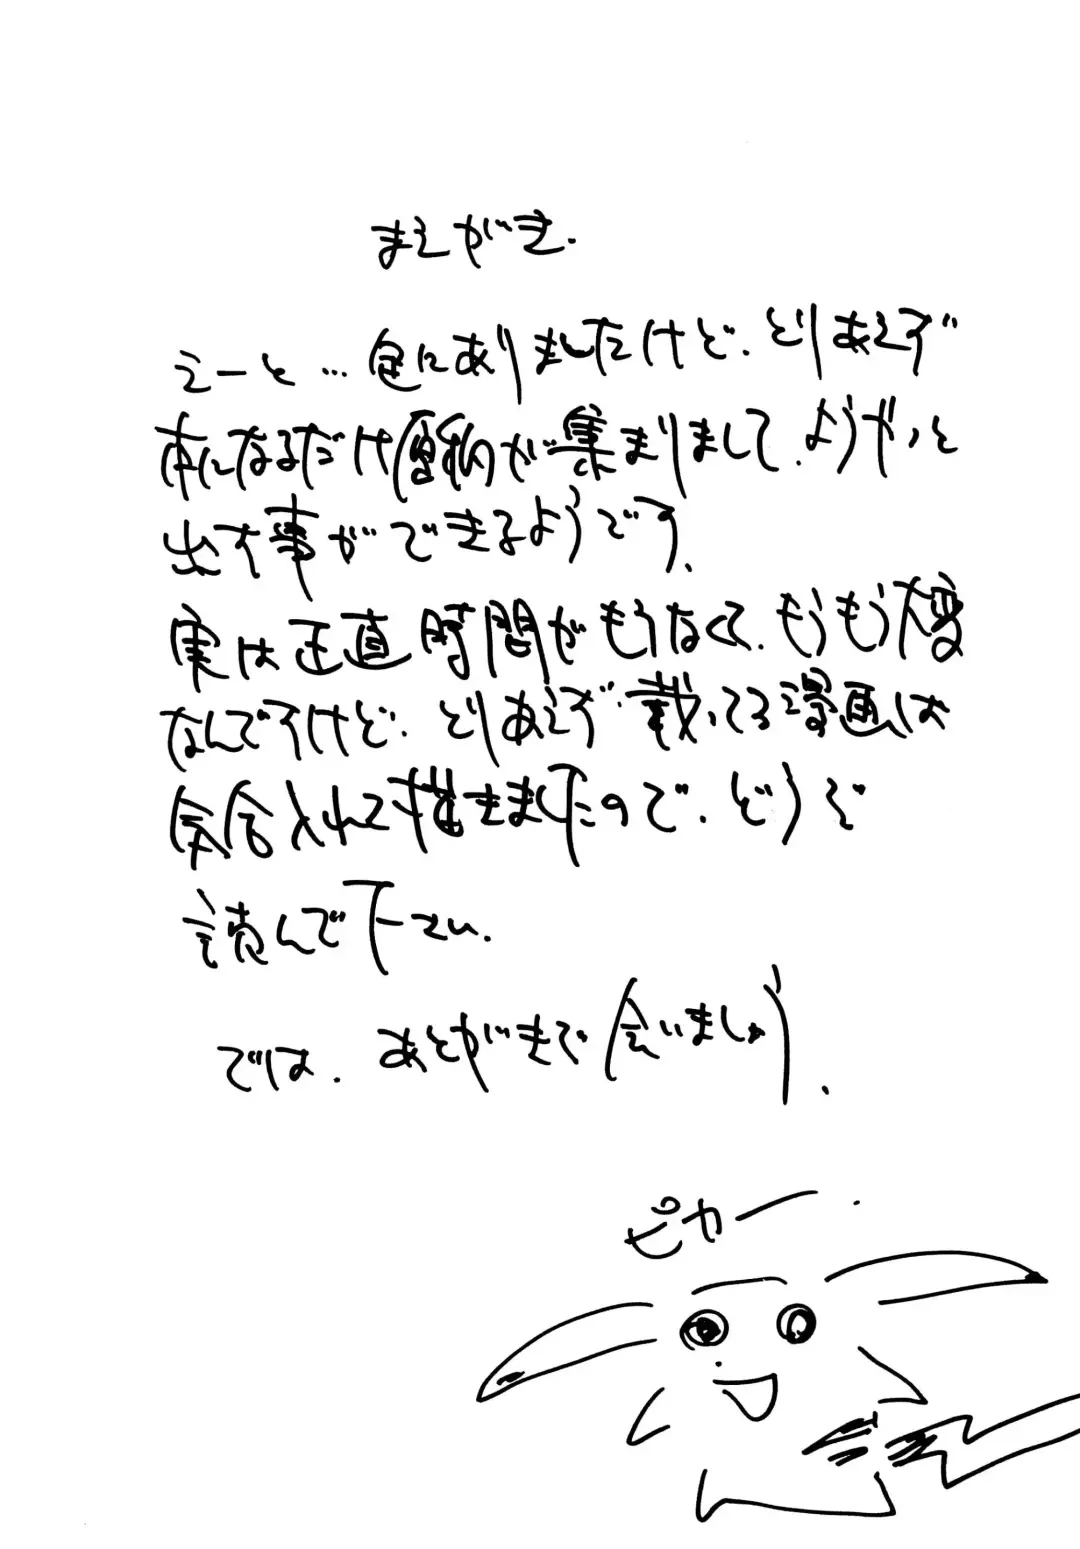 まえがき.
えーと…色々ありましたけど、とりあえず
本になるだけ原稿が集まりまして、ようやっと
出す事ができるようです、
実は正直時間がもうなくて、もうもう大変
なんですけど、とりあえず載ってる漫画は
気合入れて描きましたので、どうぞ
読んで下さい、
では、あとがきで会いましょう、
ピカー.